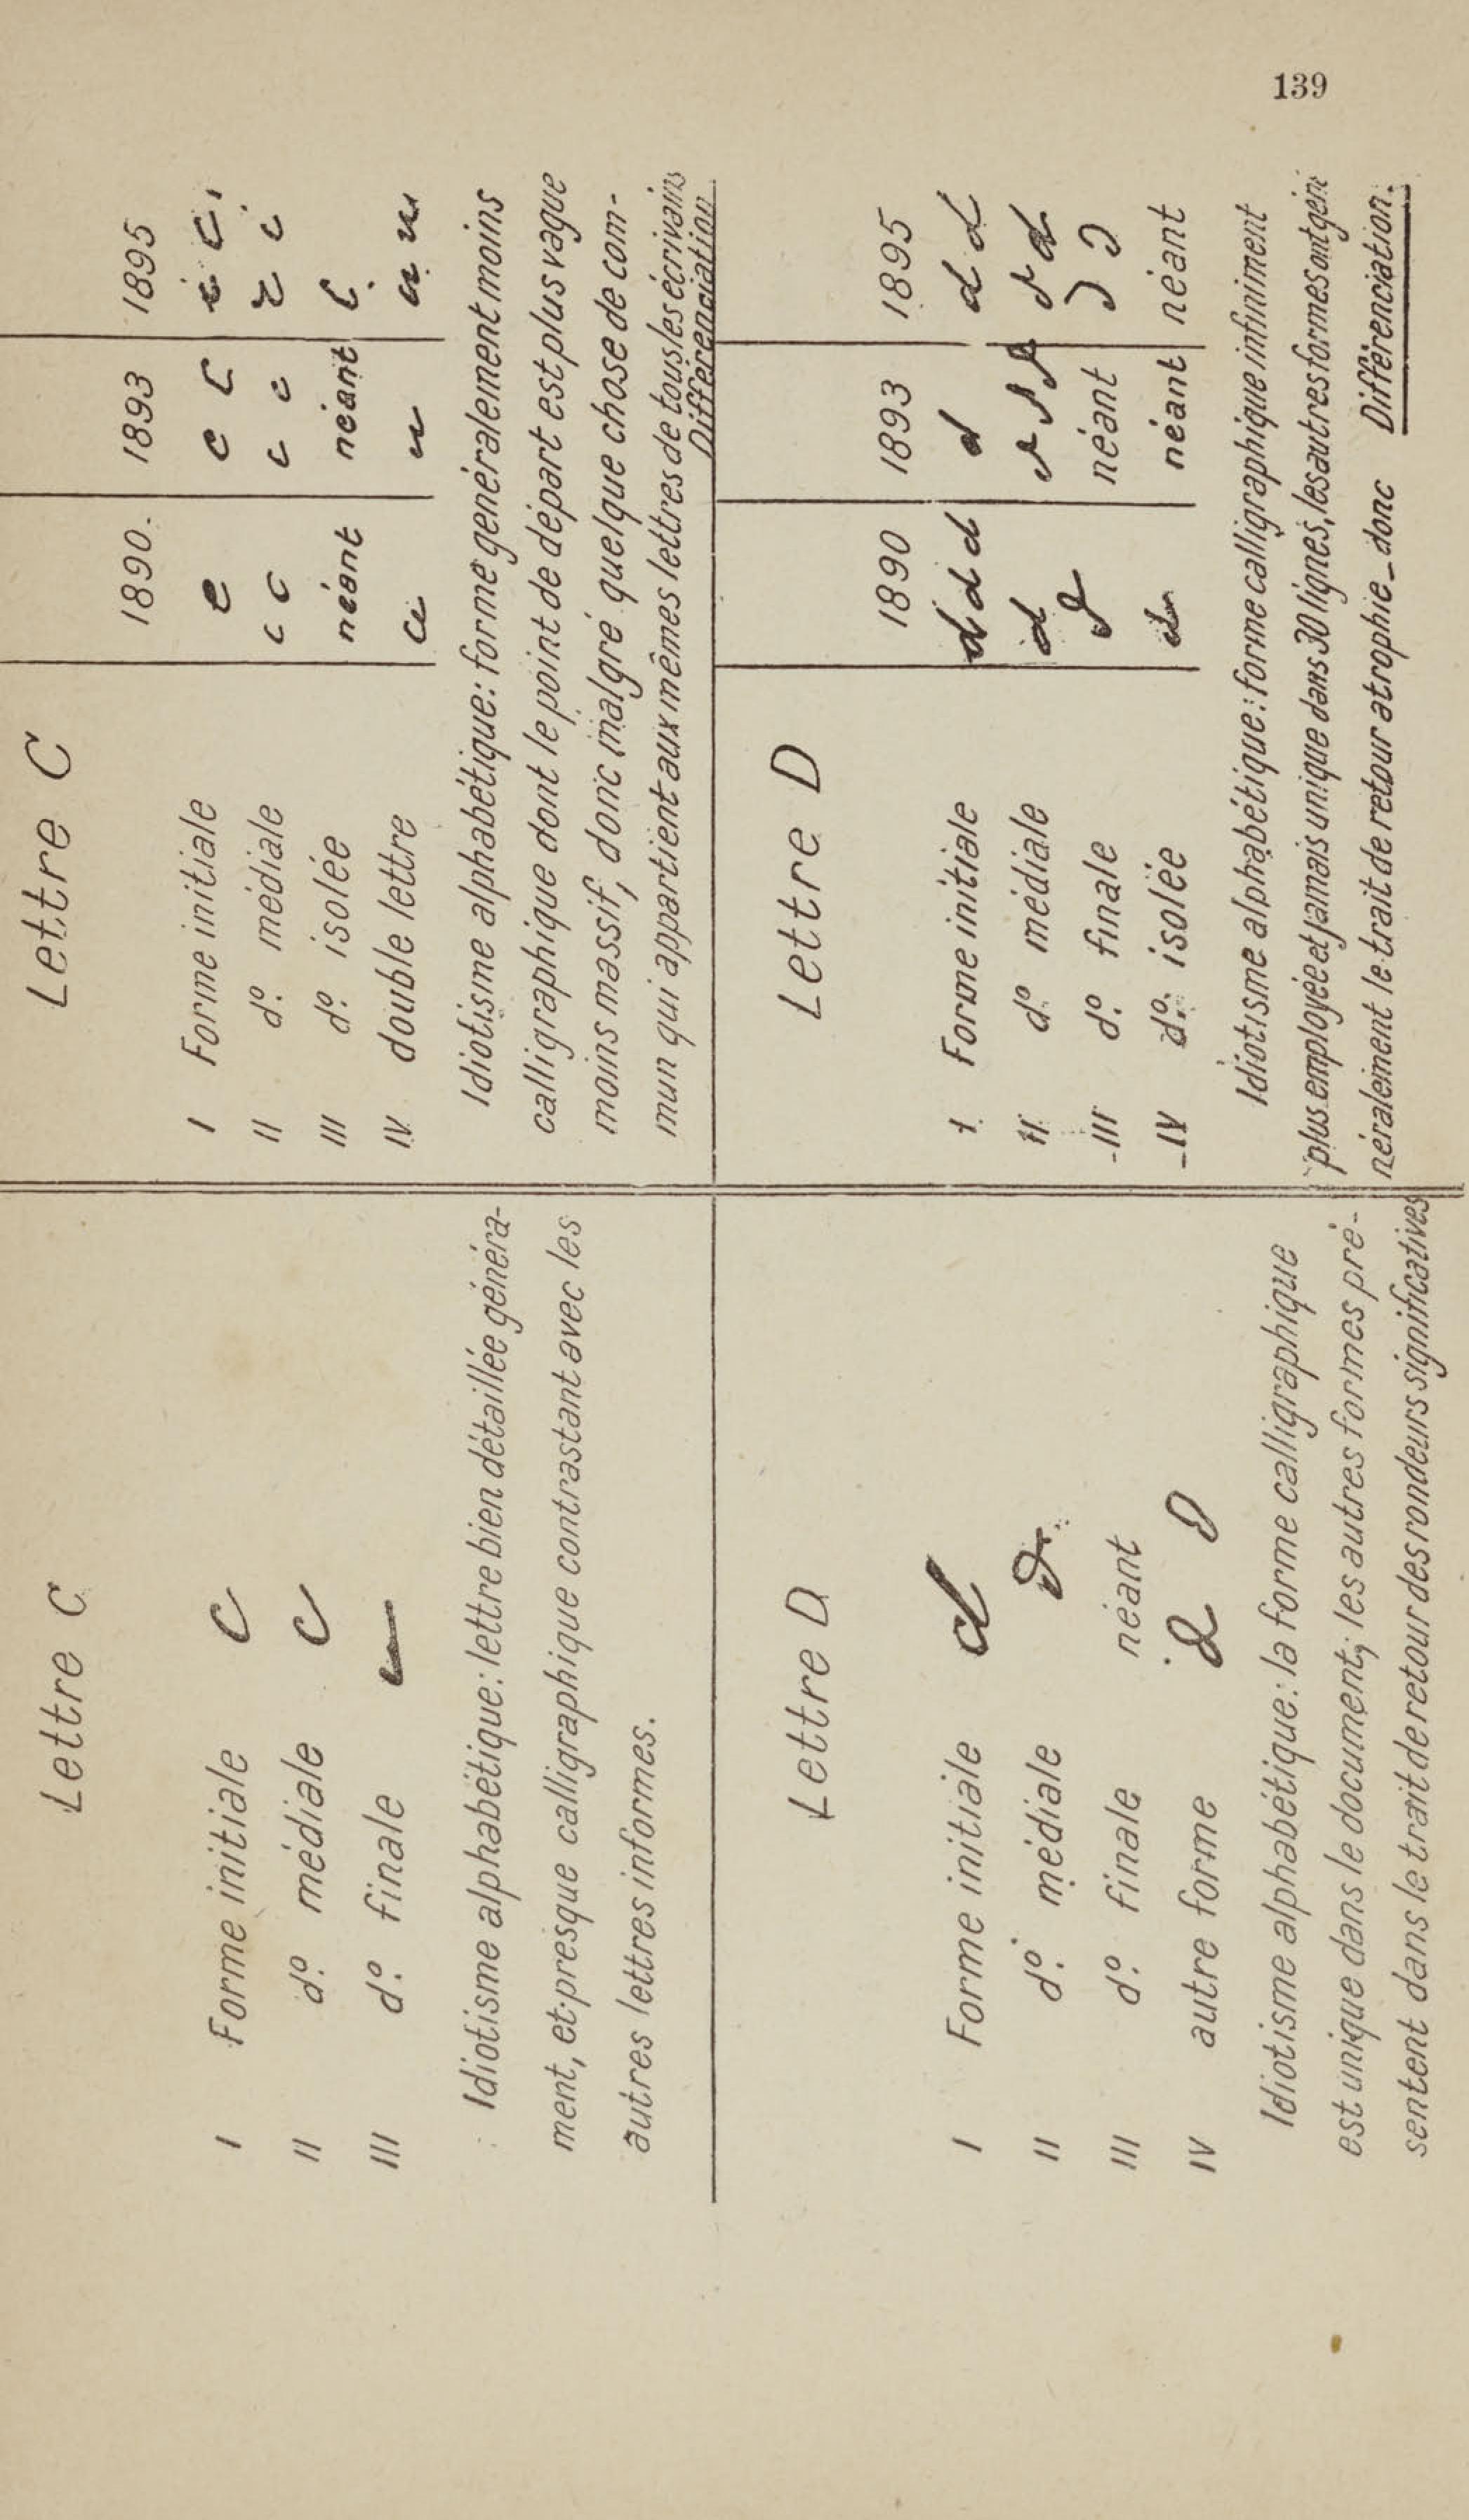 139
Lettre C
I Forme initiale C
II d.º médiale C
III d.º finale
Idiotisme alphabétique: lettre bien détaillée généra-
ment, et presque calligraphique contrastant avec les
autres lettres informes.
Lettre C
1890. 1893 1895
I Forme initiale e c c c c
II d.º médiale c c c c c c
III d.º isolée néant néant c
IV double lettre
Idiotisme alphabétique: forme généralement moins
calligraphique dont le point de départ est plus vague
moins massif, donc malgré quelque chose de com-
mun qui appartient aux mêmes lettres de tous les écrivains
Différenciation
Lettre D
I Forme initiale d
II d.º médiale d
III d.º finale néant
IV autre forme d d
Idiotisme alphabétique: la forme calligraphique
est unique dans le document; les autres formes pré-
sentent dans le trait de retour des rondeurs significatives
Lettre D
1890 1893 1895
I Forme initiale d d d d d d
II d.º médiale d d d d d d
III d.º finale d néant d d
IV d.º isolée d néant néant
Idiotisme alphabétique: forme calligraphique infiniment
plus employée et jamais unique dans 30 lignes, les autres formes ont gén
néralement le trait de retour atrophie _ donc Différenciation.